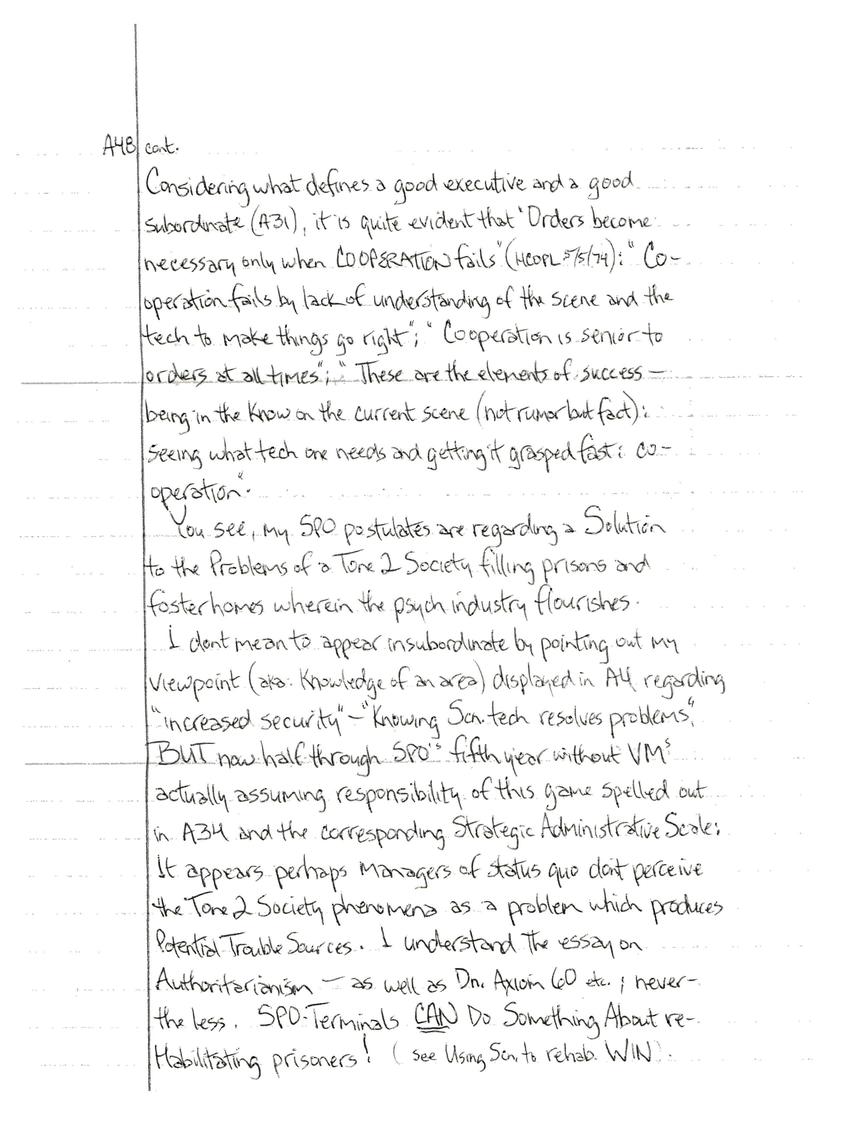 A48 cont.
Considering what defines a good executive and a good
subordinate (A31), it is quite evident that "Orders become
necessary only when COOPERATION fails" (HCOPL 5/5/74): "Co-
operation fails by lack of understanding of the scene and the
tech to make things go right"; "Cooperation is senior to
orders at all times"; "These are the elements of success —
being in the know on the current scene (not rumor but fact):
seeing what tech one needs and getting it grasped fast: co-
operation".
You see, my SPO postulates are regarding a Solution
to the Problems of a Tone 2 Society filling prisons and
foster homes wherein the psych industry flourishes.
I dont mean to appear insubordinate by pointing out my
viewpoint (aka: Knowledge of an area) displayed in A4 regarding
"increased security" – "Knowing Scn. tech resolves problems",
BUT now half through SPO's fifth year without VMs
actually assuming responsibility of this game spelled out
in A34 and the corresponding Strategic Administrative Scale;
It appears perhaps Managers of status quo dont perceive
the Tone 2 Society phenomena as a problem which produces
Potential Trouble Sources. I understand the essay on
Authoritarianism – as well as Dn. Axiom 60 etc.; never-
the less. SPO-Terminals CAN Do Something About re-
Habilitating prisoners! (see Using Scn. to rehab. WIN).